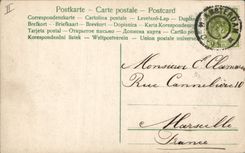 II
Postkarte - Carte postale - Postcard
Correspondenzkarte - Cartolina postale - Levelező-Lap - Dopisnice
Brefkort - Briefkaart - Brevkort - Dopisnica - Karta Korespondencyjna
Tarjeta postal - Открытое письмо - Домовна карта - Cartão postal
Korespondenční lístek - Weltpostverein - Union postale universelle
Monsieur C.
Rue Cannebière 11
Marseille
France